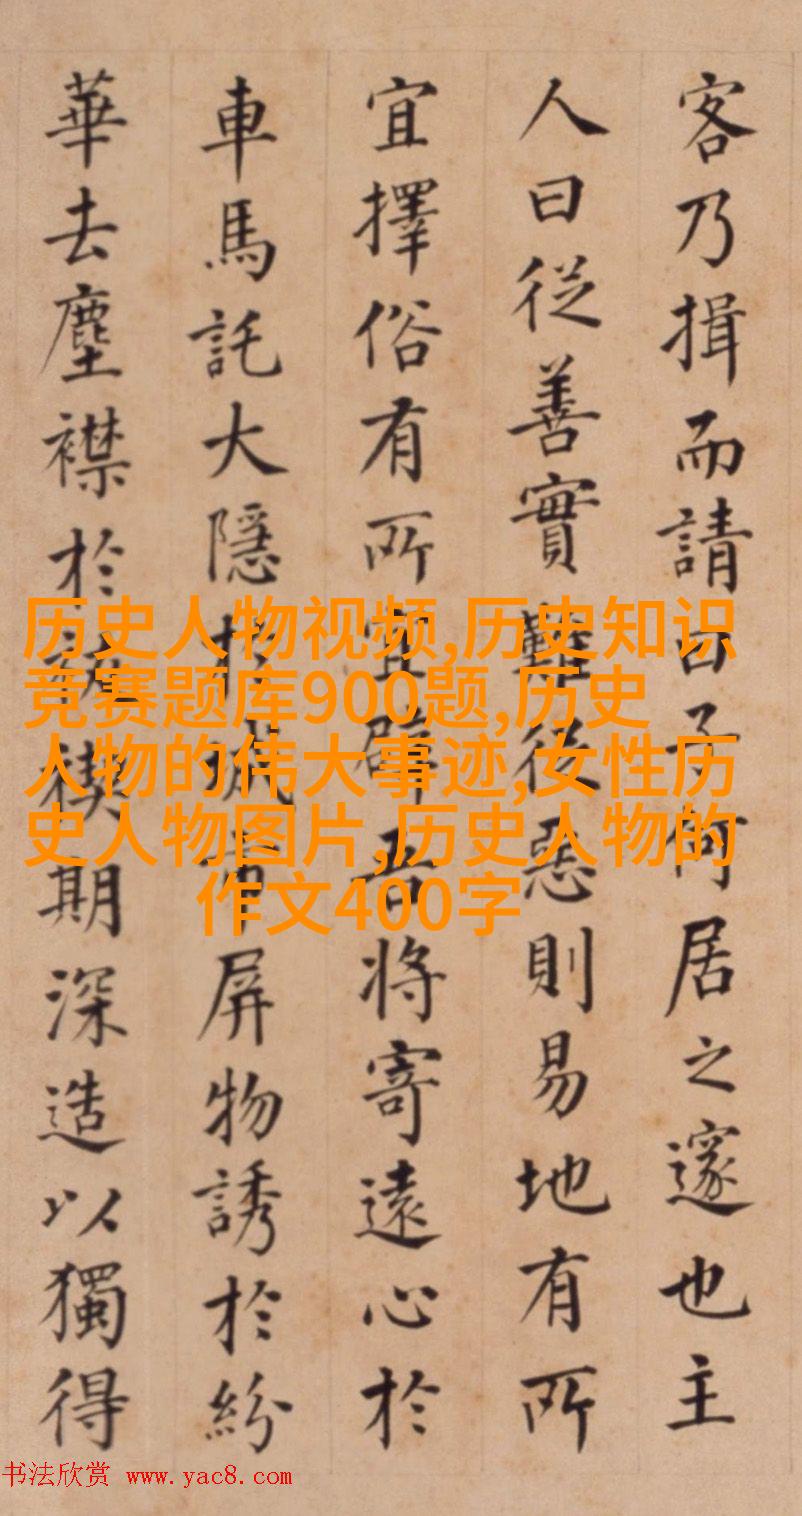 客乃揖而請曰子何居之邃也主
人曰從善實難從惡則易地有所
宜擇俗有所宜辟吾將寄遠心於
車馬託大隱於城市屏物誘於紛
華去塵襟於禊期深造以獨得
历史人物视频,历史知识
竞赛题库900题,历史
人物的伟大事迹,女性历
史人物图片,历史人物的
作文400字
书法欣赏 www.yac8.com